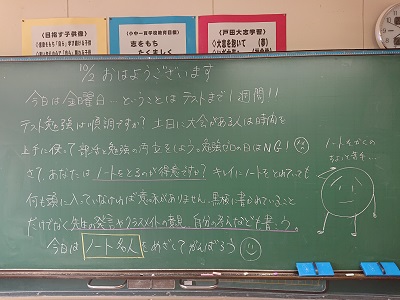 <目指す子供像>
<小中一貫学校教育目標>
志をもち
たくましく
<戸田大志学習>
10/2 おはようございます
今日は金曜日…ということはテストまで1週間!!
テスト勉強は順調ですか?土日に大会がある人は時間を
上手に使って部活と勉強の両立をしよう。勉強ゼロの日はNG!
さて、あなたはノートをとるのが得意ですか?キレイにノートをとれていても
何も頭に入っていなければ意味がありません。黒板に書かれていること
だけでなく先生の発言やクラスメイトの意見、自分の考えなども書こう。
今日はノート名人をめざしてがんばろう
ノートをかくの
ちょっと苦手…